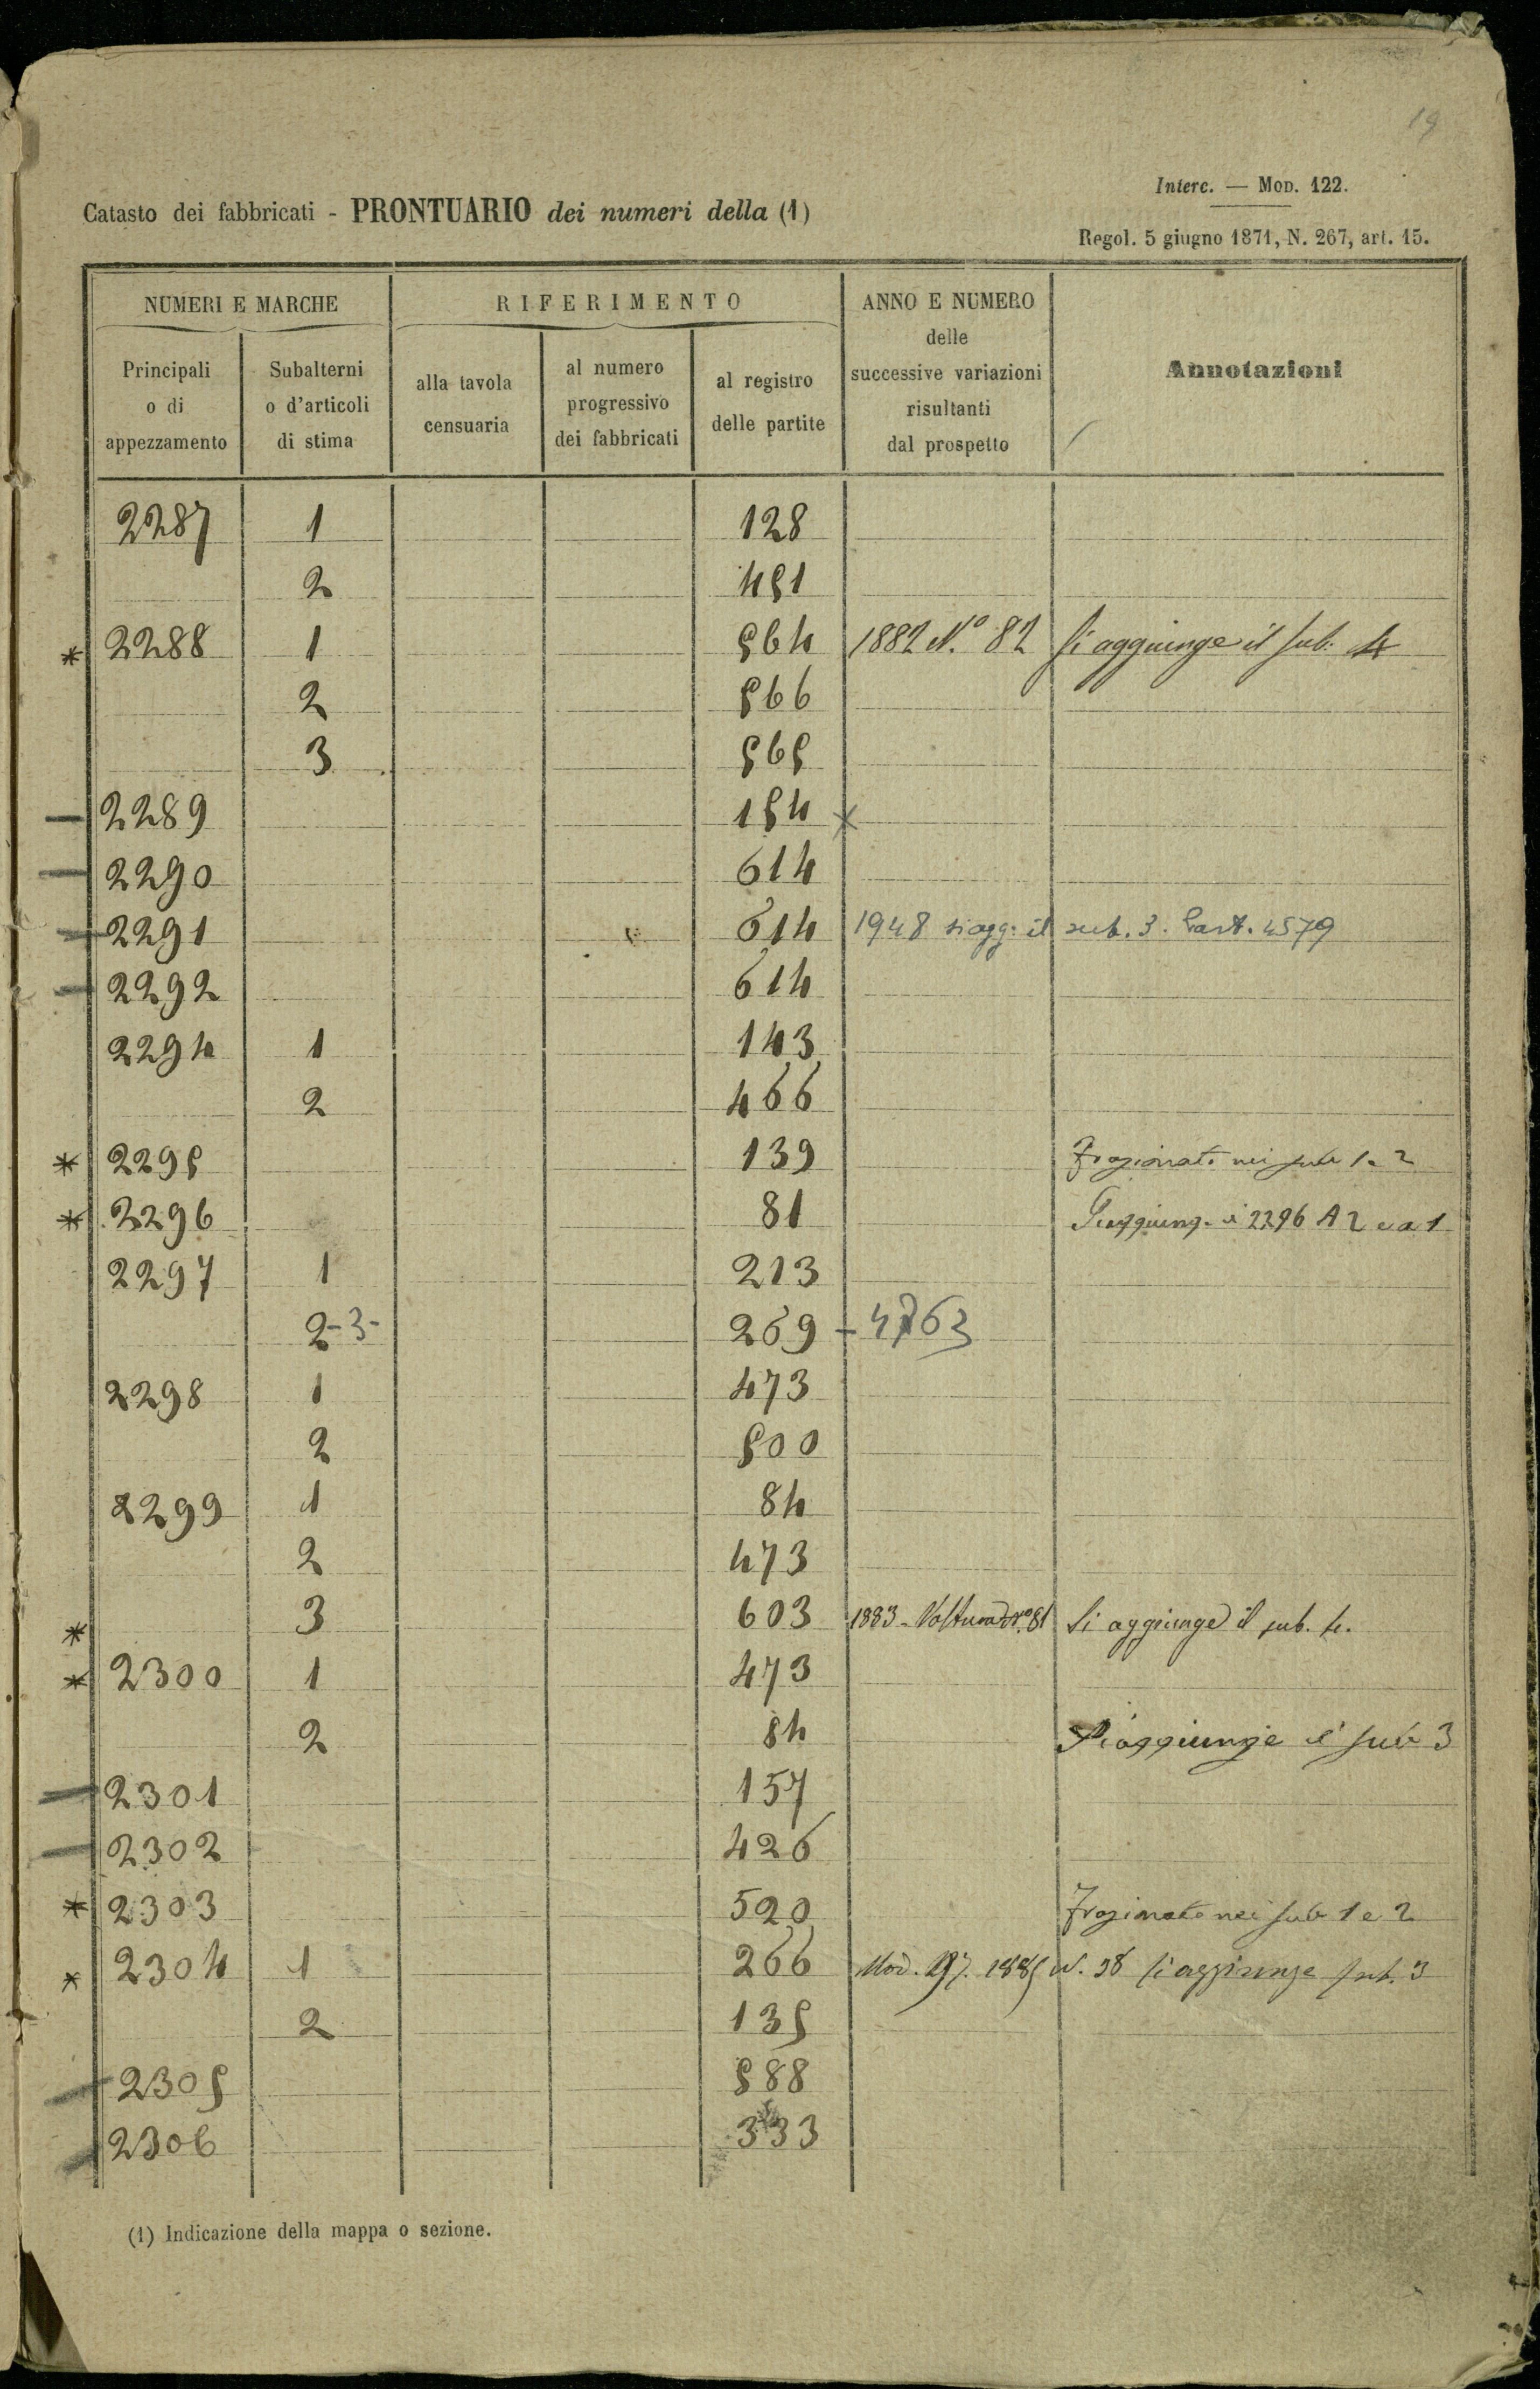 19
Interc. — Mod. 122.
Catasto dei fabbricati - PRONTUARIO dei numeri della (1)
Regol. 5 giugno 1871, N. 267, art. 15.
NUMERI E MARCHE
RIFERIMENTO
ANNO E NUMERO
delle
successive variazioni
risultanti
dal prospetto
Annotazioni
Principali
o di
appezzamento
Subalterni
o d'articoli
di stima
alla tavola
censuaria
al numero
progressivo
dei fabbricati
al registro
delle partite
2287 1 128
2 451
* 2288 1 564 1882 N.° 82 Si aggiunge il sub. 4
2 566
3 565
— 2289 154 x
— 2290 614
— 2291 614 1948 si agg. il sub. 3. Part. 4579
— 2292 614
2294 1 143
2 466
* 2295 139 Frazionato nei sub 1 e 2
* 2296 81 2296 A 2
2297 1 213
2 -3- 269 - 4763
2298 1 473
2 500
2299 1 84
2 473
* 3 603 1883 - Voltura N.° 81 Si aggiunge il sub. 4.
* 2300 1 473
2 84 Si aggiunge il sub 3
— 2301 157
— 2302 426
* 2303 520 Frazionato nei sub 1 e 2
* 2304 1 266 Mod. 97. 1885 N. 38 Si aggiunge sub. 3
2 135
— 2305 588
— 2306 333
(1) Indicazione della mappa o sezione.